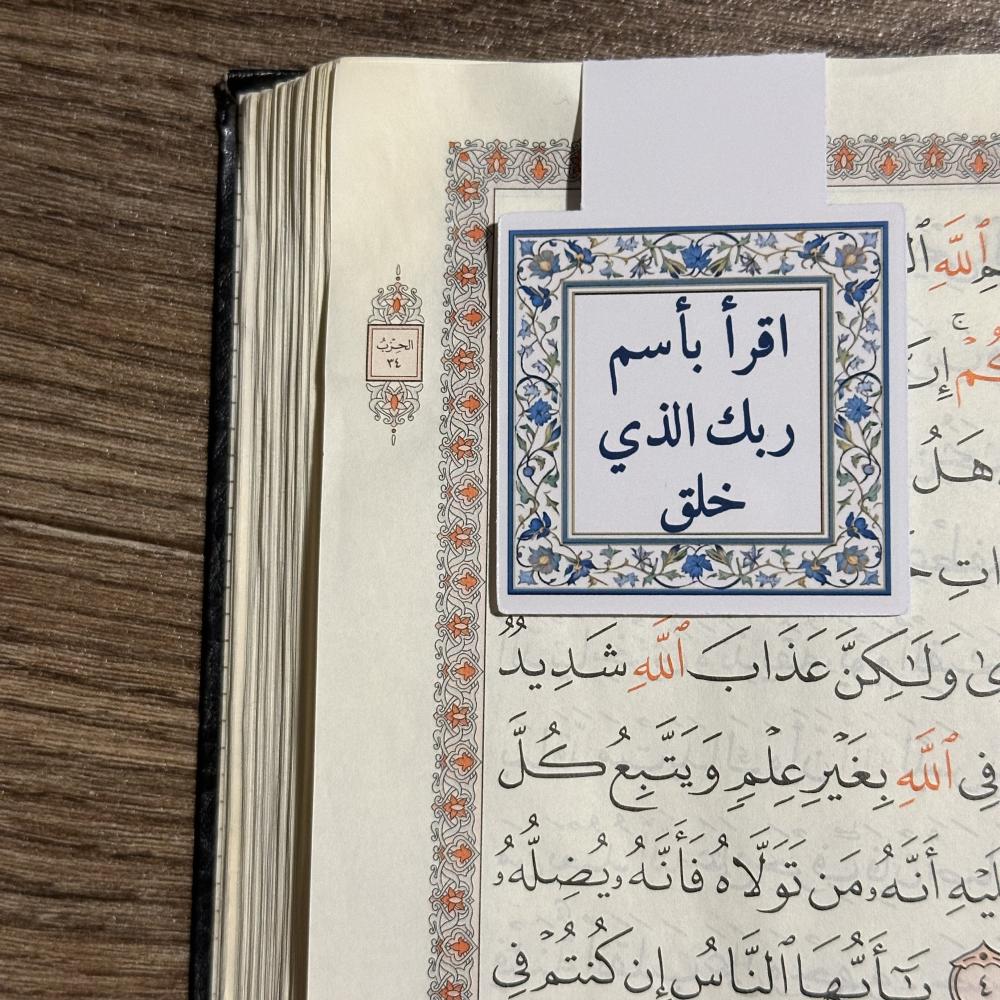 اقرأ بأسم
ربك الذي
خلق
الحِزْبُ
٣٤
ٱللَّهِ
إِنَّ
هَلُ
وَلَٰكِنَّ عَذَابَ ٱللَّهِ شَدِيدٌ
فِى ٱللَّهِ بِغَيْرِ عِلْمٍ وَيَتَّبِعُ كُلَّ
أَنَّهُۥ مَن تَوَلَّاهُ فَأَنَّهُۥ يُضِلُّهُۥ
٤ يَٰٓأَيُّهَا ٱلنَّاسُ إِن كُنتُمْ فِى